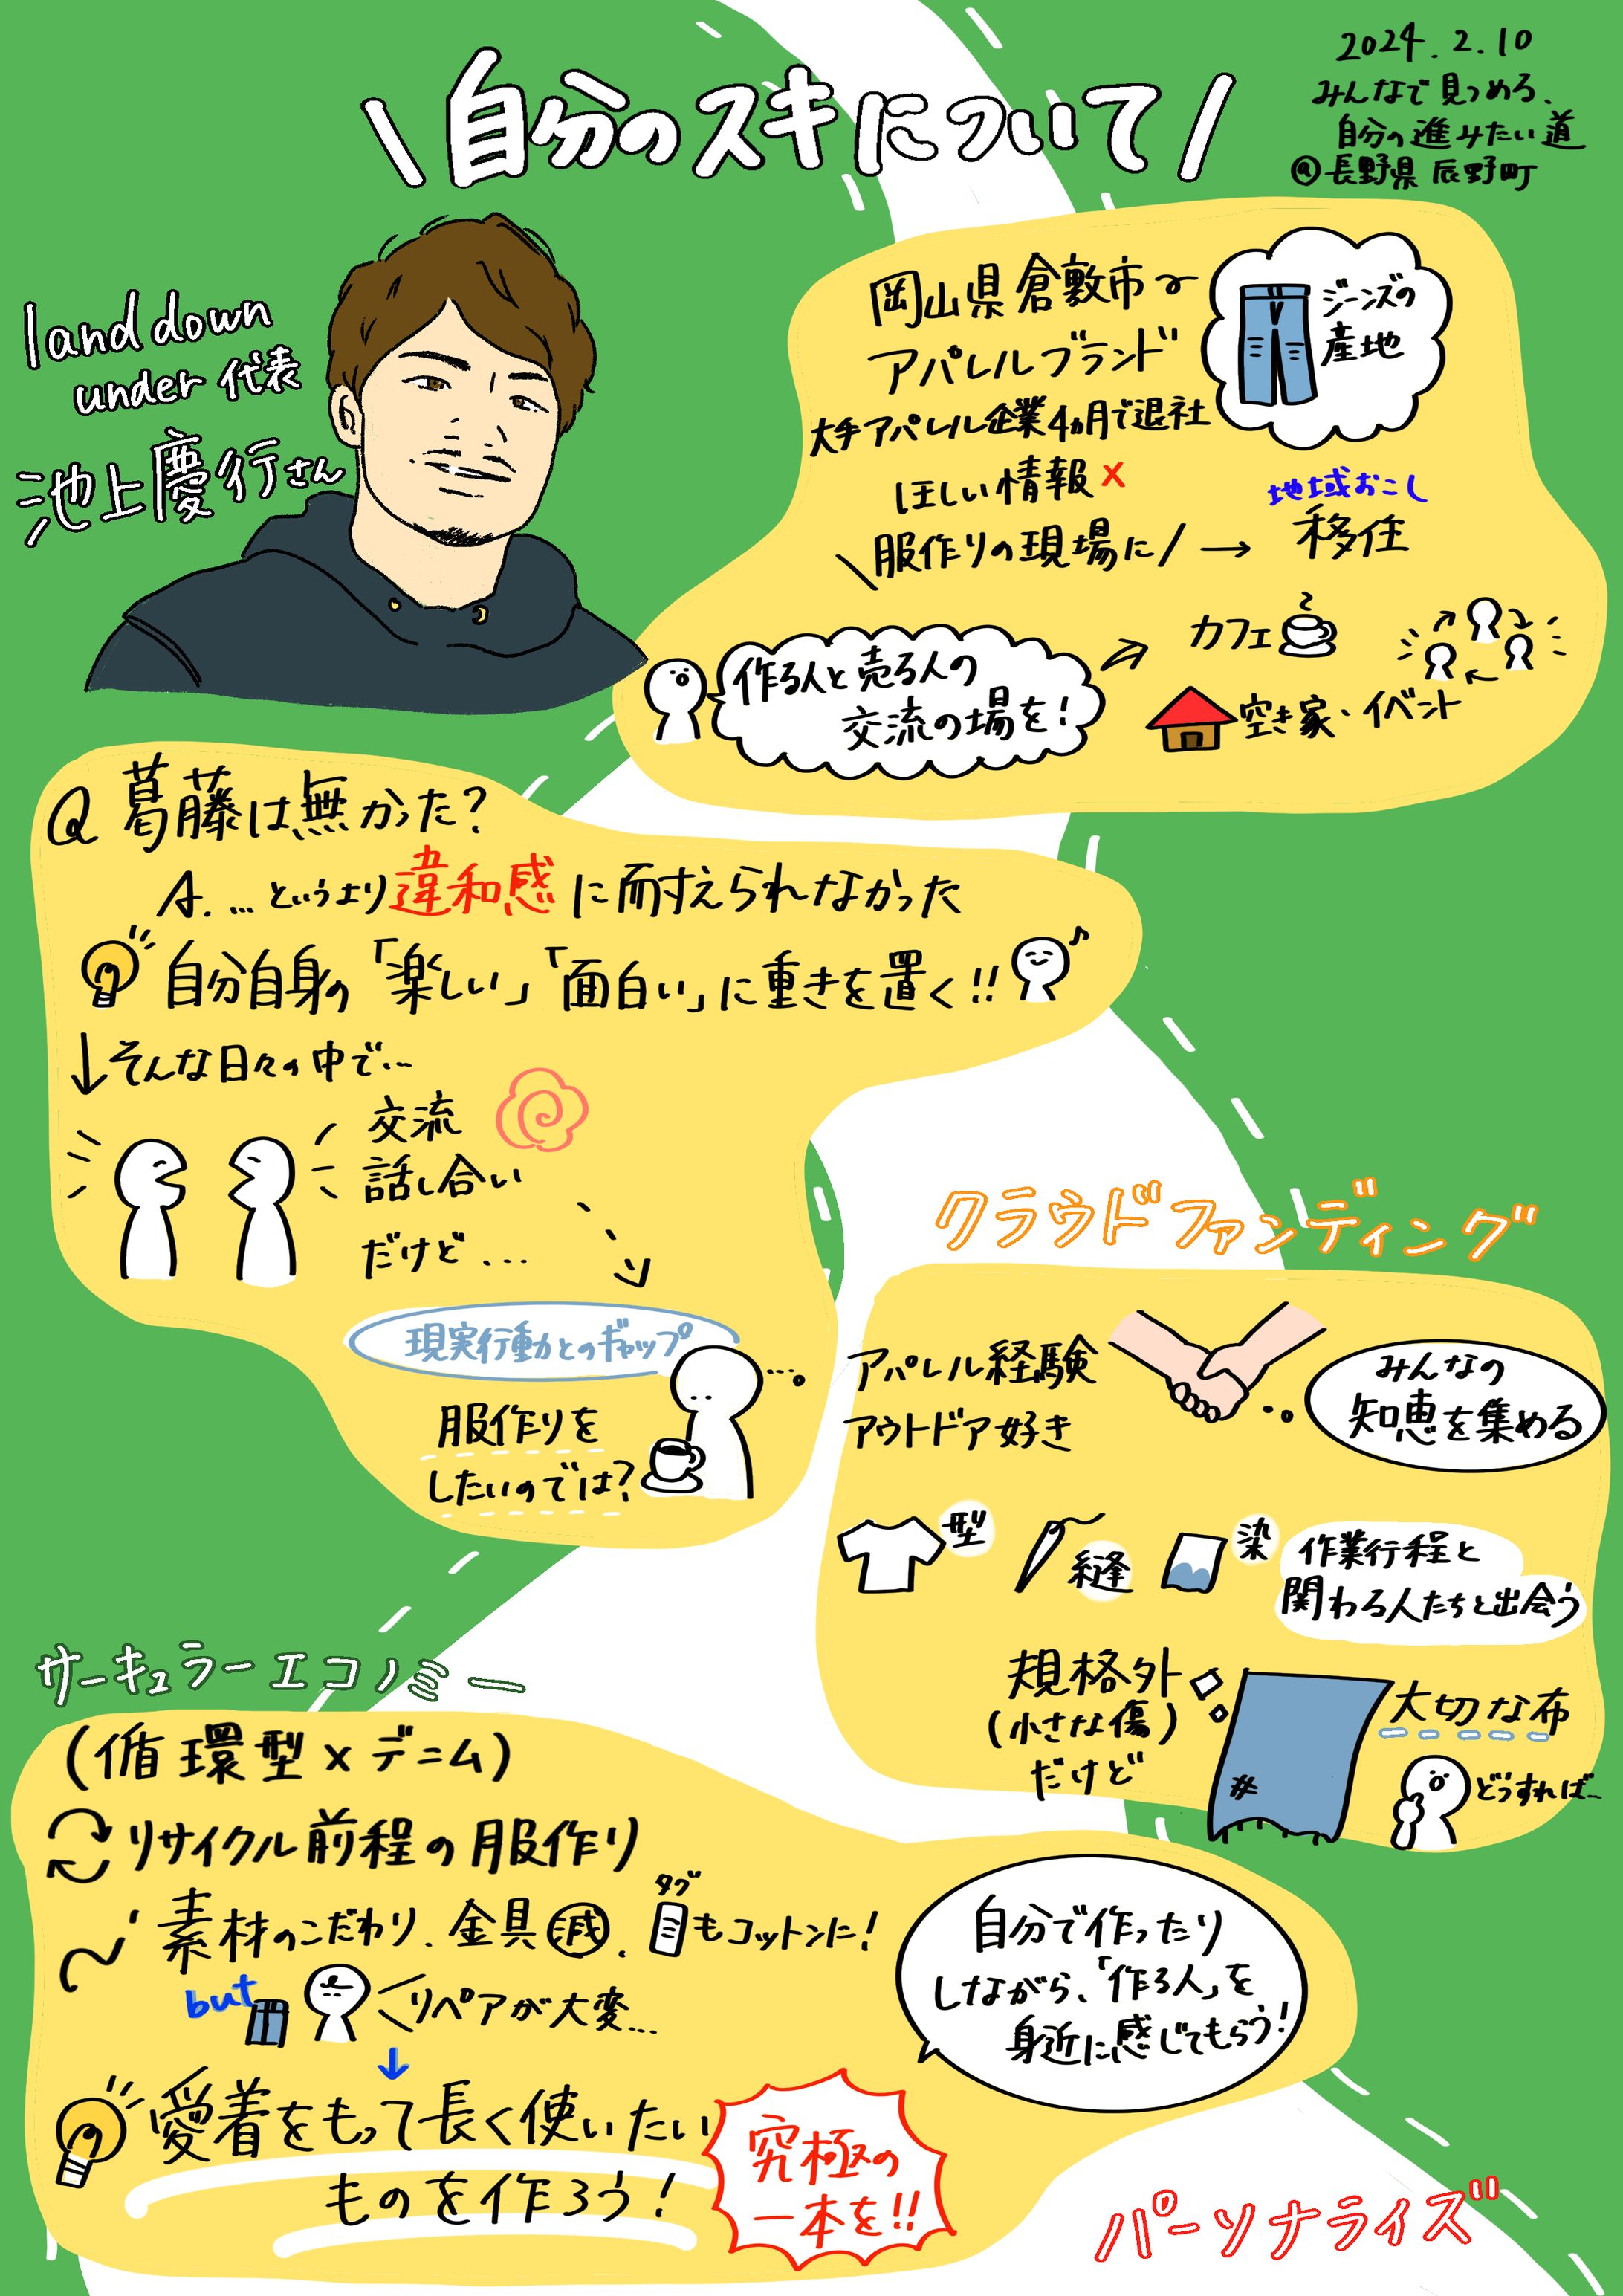 \自分のスキについて/
2024.2.10
みんなで見つめる、
自分の進みたい道
@長野県 辰野町
land down
under 代表
池上慶行さん
岡山県倉敷市で
アパレルブランド
ジーンズの
産地
大手アパレル企業4ヵ月で退社
ほしい情報×
\服作りの現場に/→
地域おこし
移住
作る人と売る人の
交流の場を!
カフェ
空き家・イベント
Q 葛藤は無かった?
A. …というより違和感に耐えられなかった
自分自身の「楽しい」「面白い」に重きを置く!!
↓そんな日々の中で…
交流
話し合い
だけど…
現実行動とのギャップ
服作りを
したいのでは?
クラウドファンディング
アパレル経験
アウトドア好き
みんなの
知恵を集める
型
縫
染
作業行程と
関わる人たちと出会う
規格外
(小さな傷)
だけど
大切な布
どうすれば…
サーキュラーエコノミー
(循環型×デニム)
リサイクル前程の服作り
素材のこだわり、金具減、
タグ
もコットンに!
but
リペアが大変…
↓
愛着をもって長く使いたい
ものを作ろう!
究極の
一本を!!
自分で作ったり
しながら、「作る人」を
身近に感じてもらう!
パーソナライズ